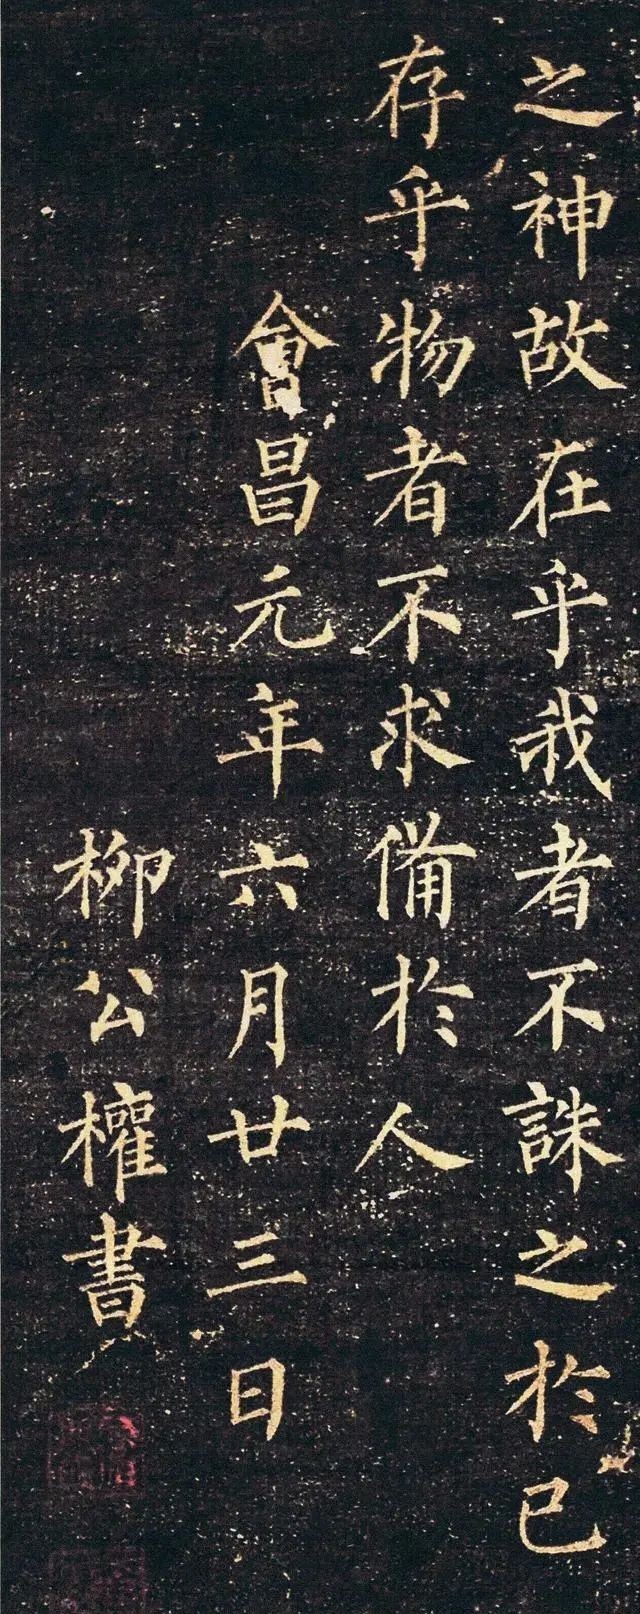 之神故在乎我者不誅之於已
存乎物者不求備於人
會昌元年六月廿三日
柳公權書